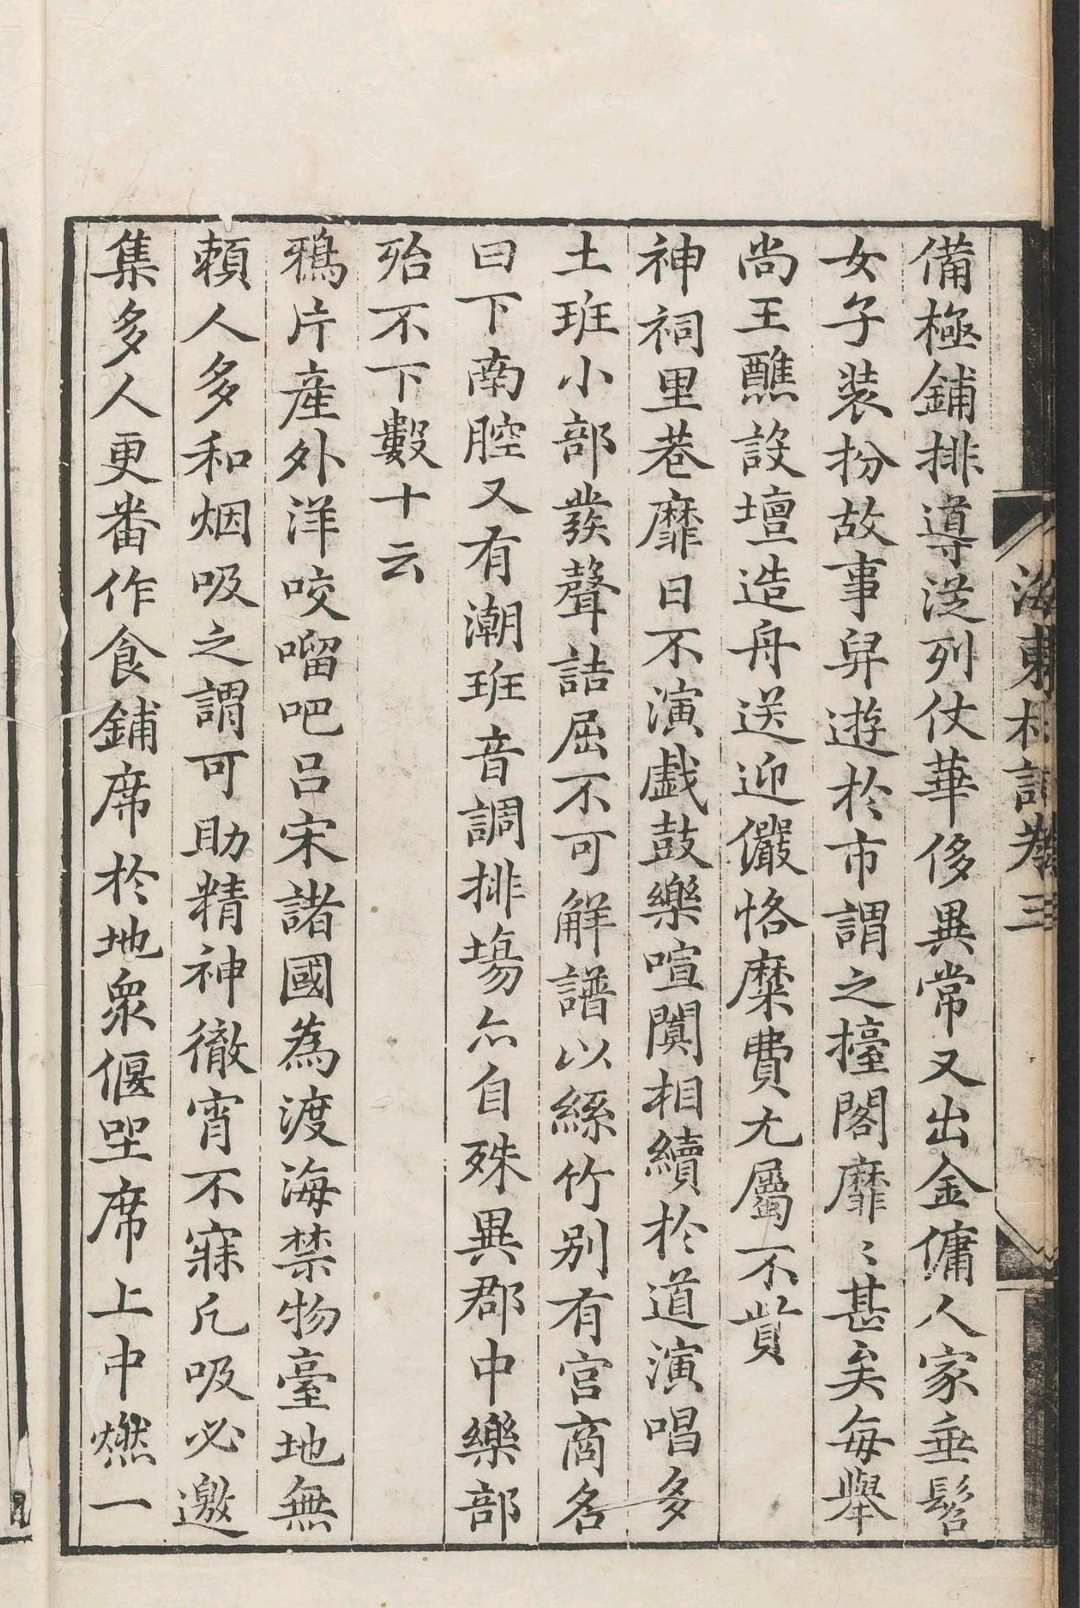 海東札記卷三
備極鋪排導從列仗華侈異常又出金傭人家垂髫
女子装扮故事舁遊於市謂之擡閣靡〻甚矣每舉
尚王醮設壇造舟送迎儼恪糜費尤屬不貲
神祠里巷靡日不演戲鼓樂喧闐相續於道演唱多
土班小部發聲詰屈不可解譜以絲竹別有宫商名
曰下南腔又有潮班音調排塲亦自殊異郡中樂部
殆不下數十云
鴉片產外洋咬𠺕吧呂宋諸國為渡海禁物臺地無
賴人多和烟吸之謂可助精神徹宵不寐凡吸必邀
集多人更番作食鋪席於地衆偃坐席上中燃一